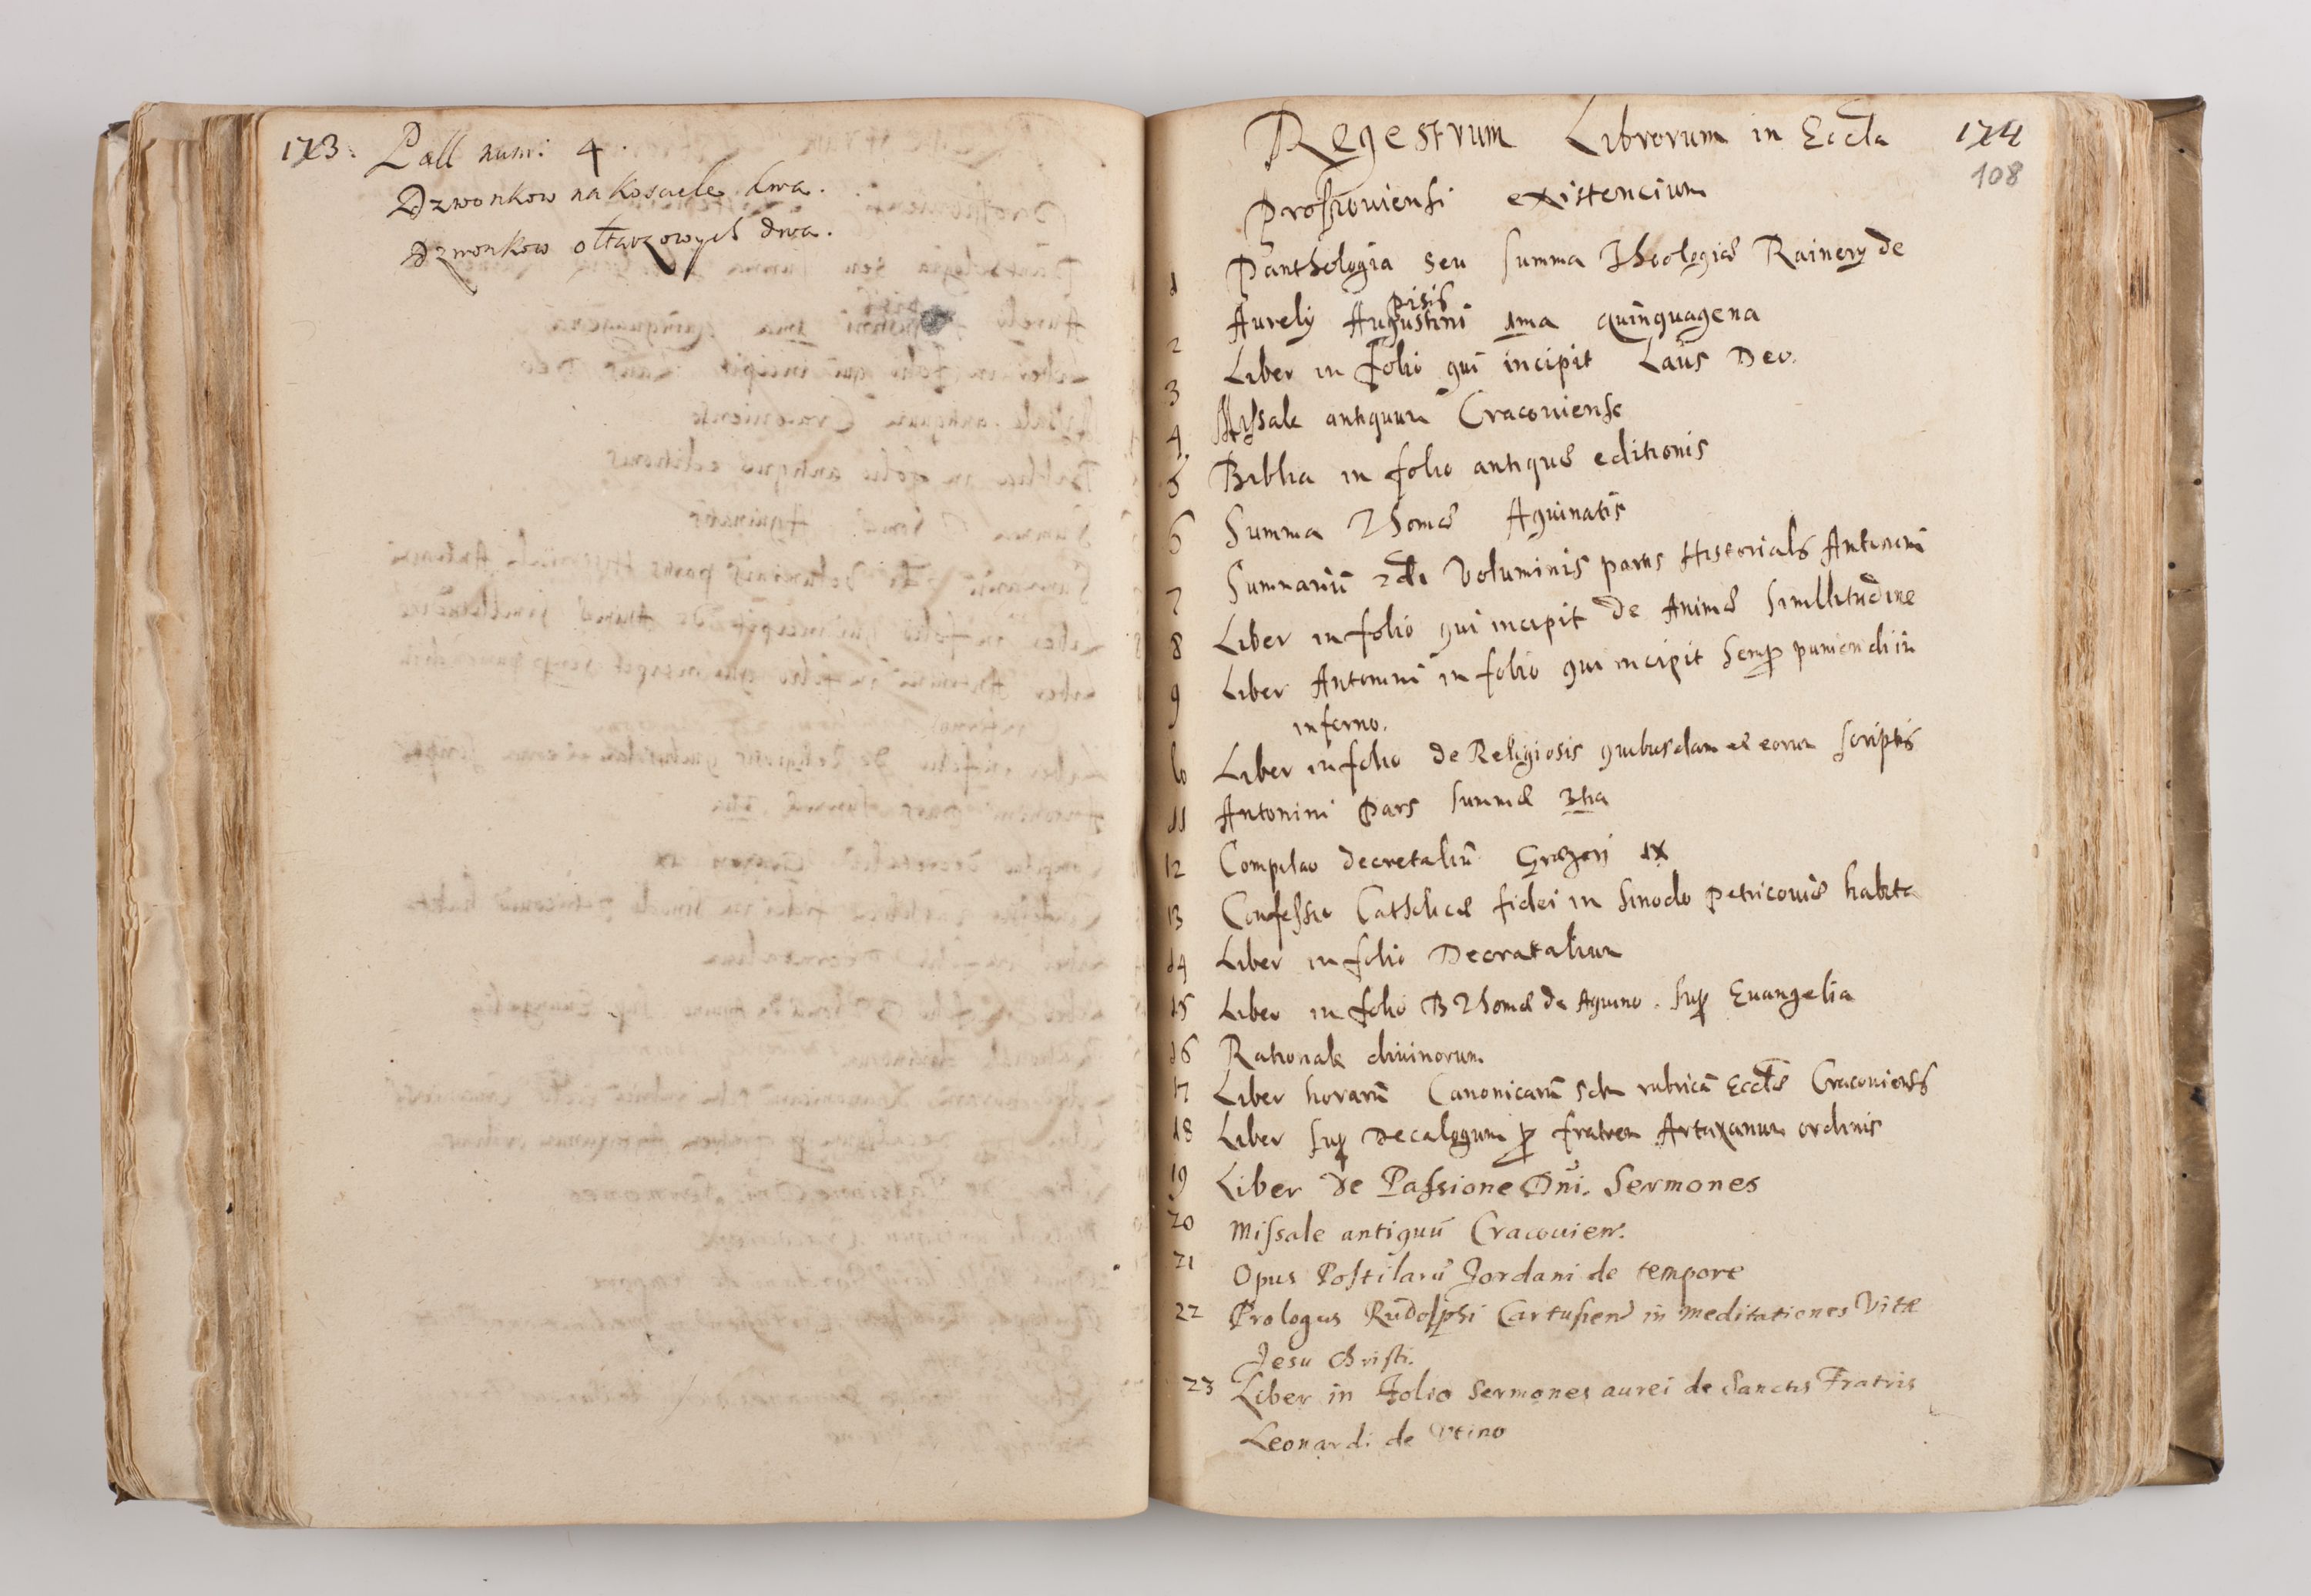 173.
Pall num: 4.
Dzwonkow na Kosciele dwa.
Dzwonkow ołtarzowych dwa.
Regestrum Librorum in Eccla
174
108
Proszouiensi existencium
1 Panthologia seu summa Theologiæ Rainery de
pisis.
2 Aurely Augustini 1ma quinquagena
3 Liber in folio qui incipit Laus Deo.
4 Missale antiquum Cracouiense
5 Biblia in folio antiquæ editionis
6 Summa Thomæ Aquinatis
7 Summariū 2di Voluminis partis Historialis Antonini
8 Liber in folio qui incipit de Animæ similitudine
9 Liber Antonini in folio qui incipit semp puniendi in
inferno.
10 Liber in folio de Religiosis quibusdam et eorum scriptis
11 Antonini Pars summæ 3tia
12 Compilao decretaliū Gregorij IX
13 Confessio Catholicæ fidei in sinodo petricouiæ habita
14 Liber in folio Decretalium
15 Liber in folio B Thomæ de Aquino. sup Euangelia
16 Rationale diuinorum
17 Liber horarū Canonicarū scdm rubricā Ecclæ Cracouiensis
18 Liber sup Decalogum p fratrem Artaxanum ordinis
19 Liber de Passione Dñi. Sermones
20 Missale antiquū Cracouien.
21 Opus Postilarū Jordani de tempore
22 Prologus Rudolphi Cartusien in meditationes Vitæ
Jesu Christi.
23 Liber in Folio Sermones aurei de Sanctis Fratris
Leonardi de Vtino